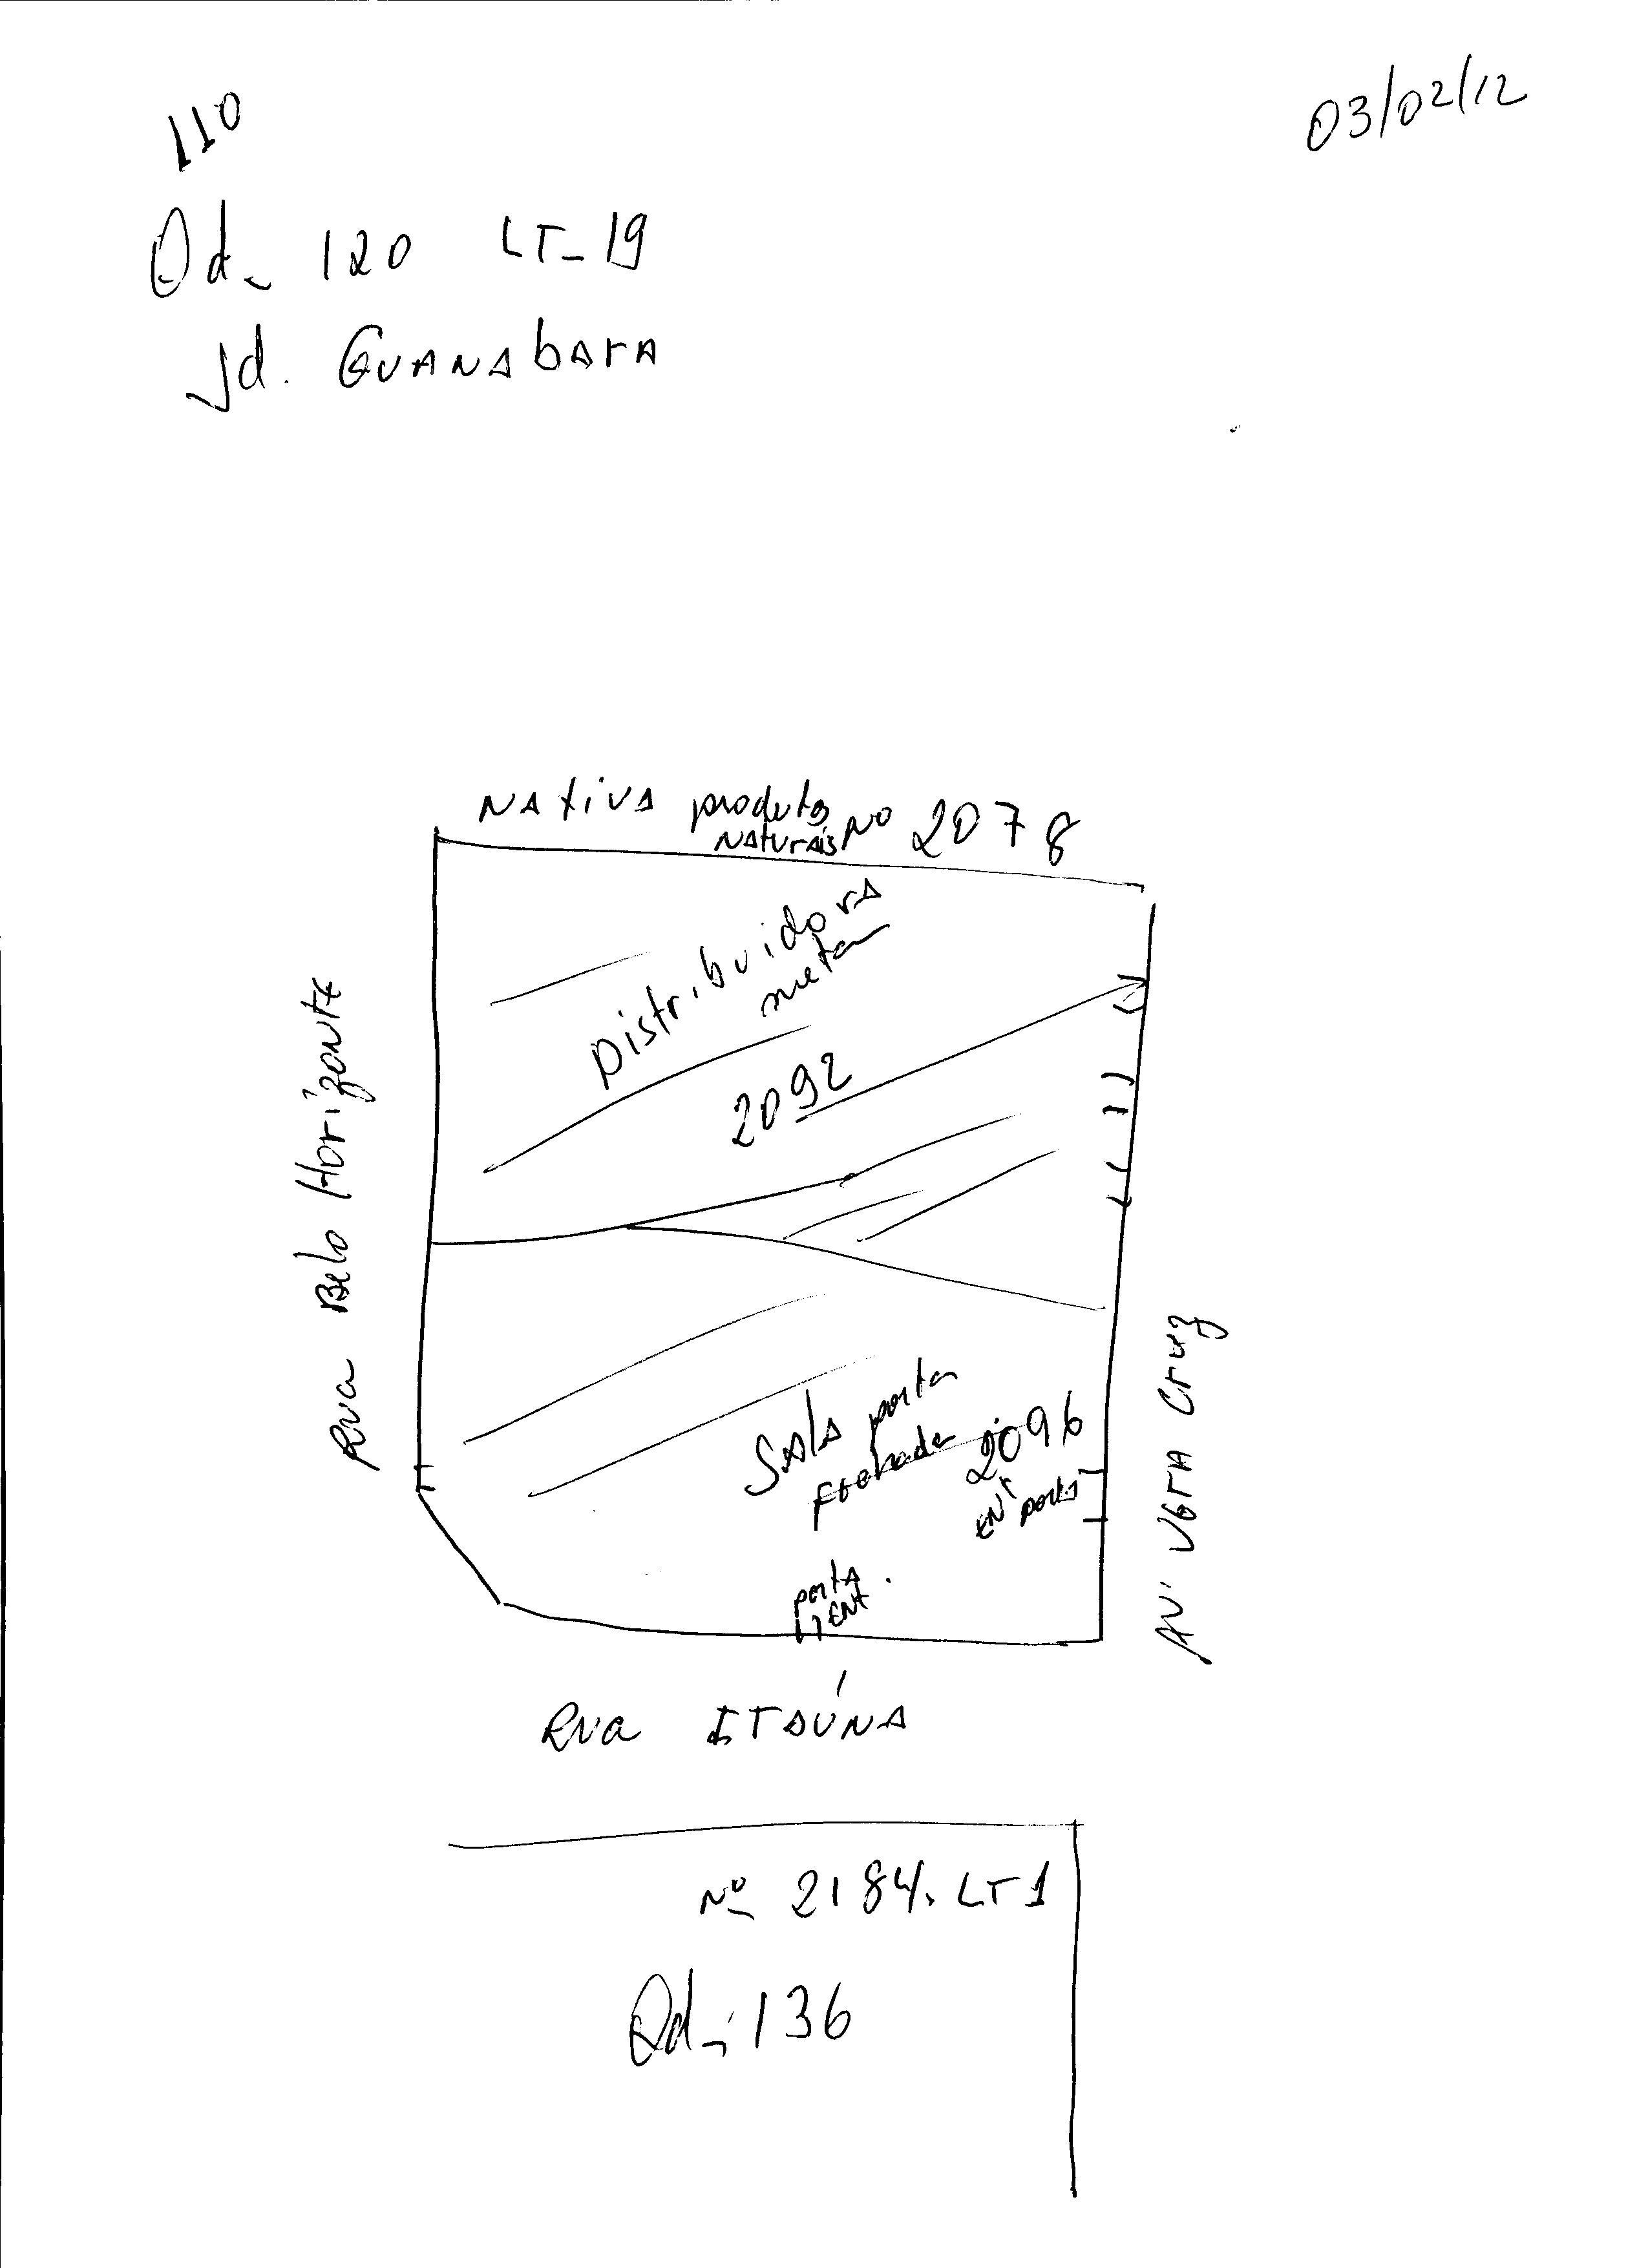 110
03/02/12
Qd- 120 LT-19
Jd. Guanabara
Nativa produtos
naturais Nº 2078
Distribuidora
2092
Rua Belo Horizonte
Sala porta
fechada 2096
ent porta
porta
ent
Av. Vera Cruz
Rua Itaúna
Nº 2184. LT1
Qd-136